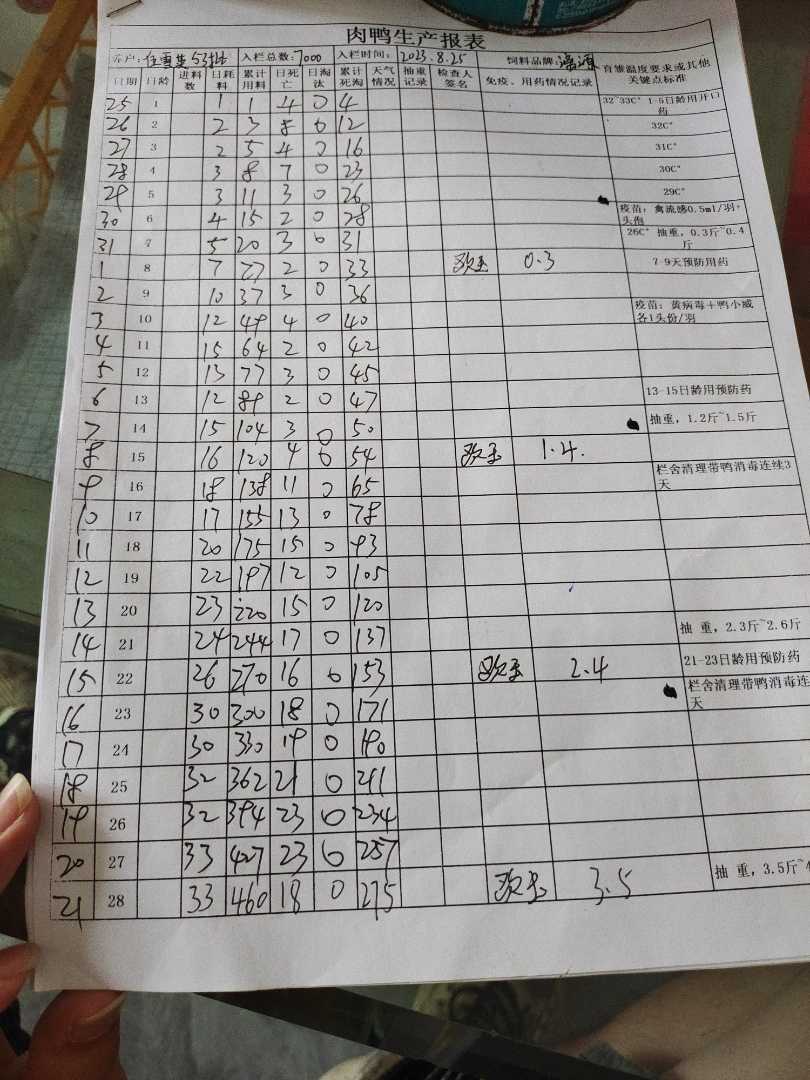 肉鸭生产报表
养户: 53批 入栏总数: 7000 入栏时间: 2023.8.25 饲料品牌: 育雏温度要求或其他关键点标准
日期 日龄 进料数 日耗料 累计用料 日死亡 日淘汰 累计死淘 天气情况 抽重记录 检查人签名 免疫、用药情况记录
25 1 1 1 4 0 4 32~33C° 1-5日龄用开口药
26 2 2 3 8 0 12 32C°
27 3 2 5 4 0 16 31C°
28 4 3 8 7 0 23 30C°
29 5 3 11 3 0 26 29C°
30 6 4 15 2 0 28 疫苗: 禽流感0.5ml/羽+头孢
31 7 5 20 3 0 31 26C° 抽重, 0.3斤~0.4斤
1 8 7 27 2 0 33 0.3 7-9天预防用药
2 9 10 37 3 0 36
3 10 12 49 4 0 40 疫苗: 黄病毒+鸭小威各1头份/羽
4 11 15 64 2 0 42
5 12 13 77 3 0 45
6 13 12 89 2 0 47 13-15日龄用预防药
7 14 15 104 3 0 50 抽重, 1.2斤~1.5斤
8 15 16 120 4 0 54 1.4.
9 16 18 138 11 0 65 栏舍清理带鸭消毒连续3天
10 17 17 155 13 0 78
11 18 20 175 15 0 93
12 19 22 197 12 0 105
13 20 23 220 15 0 120
14 21 24 244 17 0 137 抽 重, 2.3斤~2.6斤
15 22 26 270 16 0 153 2.4 21-23日龄用预防药
16 23 30 300 18 0 171 栏舍清理带鸭消毒连天
17 24 30 330 19 0 190
18 25 32 362 21 0 211
19 26 32 394 23 0 234
20 27 33 427 23 0 257
21 28 33 460 18 0 275 3.5 抽 重, 3.5斤~